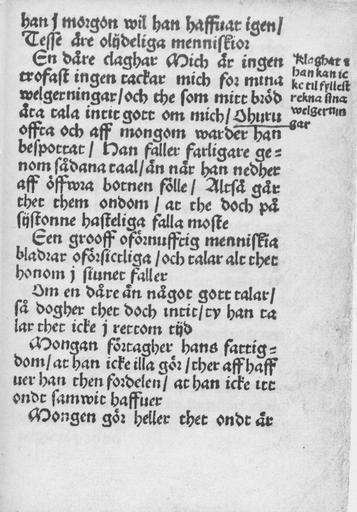 han j morgon wil han haffuat igen/
Tesse äre olijdeliga menniskior
En dåre claghar Mich är ingen
trofast ingen tackar mich for mina
welgerningar/och the som mitt bröd
äta tala intit gott om mich/Ohuru
offta och aff mongom warder han
bespottat/ Han faller farligare ge⸗
nom sådana taal/än när han nedher
aff öffwra botnen fölle/ Altså går
thet them ondom/at the doch på
sijstonne hasteliga falla moste
Een grooff oförnufftig menniskia
bladrar oförsictliga/och talar alt thet
honom j siunet faller
Om en dåre än något gott talar/
så dogher thet doch intit/ty han ta
lar thet icke j rettom tijd
Mongan förtagher hans fattig⸗
dom/at han icke illa gör/ther aff haff
uer han then fordelen/at han icke itt
ondt samwit haffuer
Mongen gör heller thet ondt är
Klaghat at
han kan ic
ke til fyllest
rekna sina
welgernin
gar